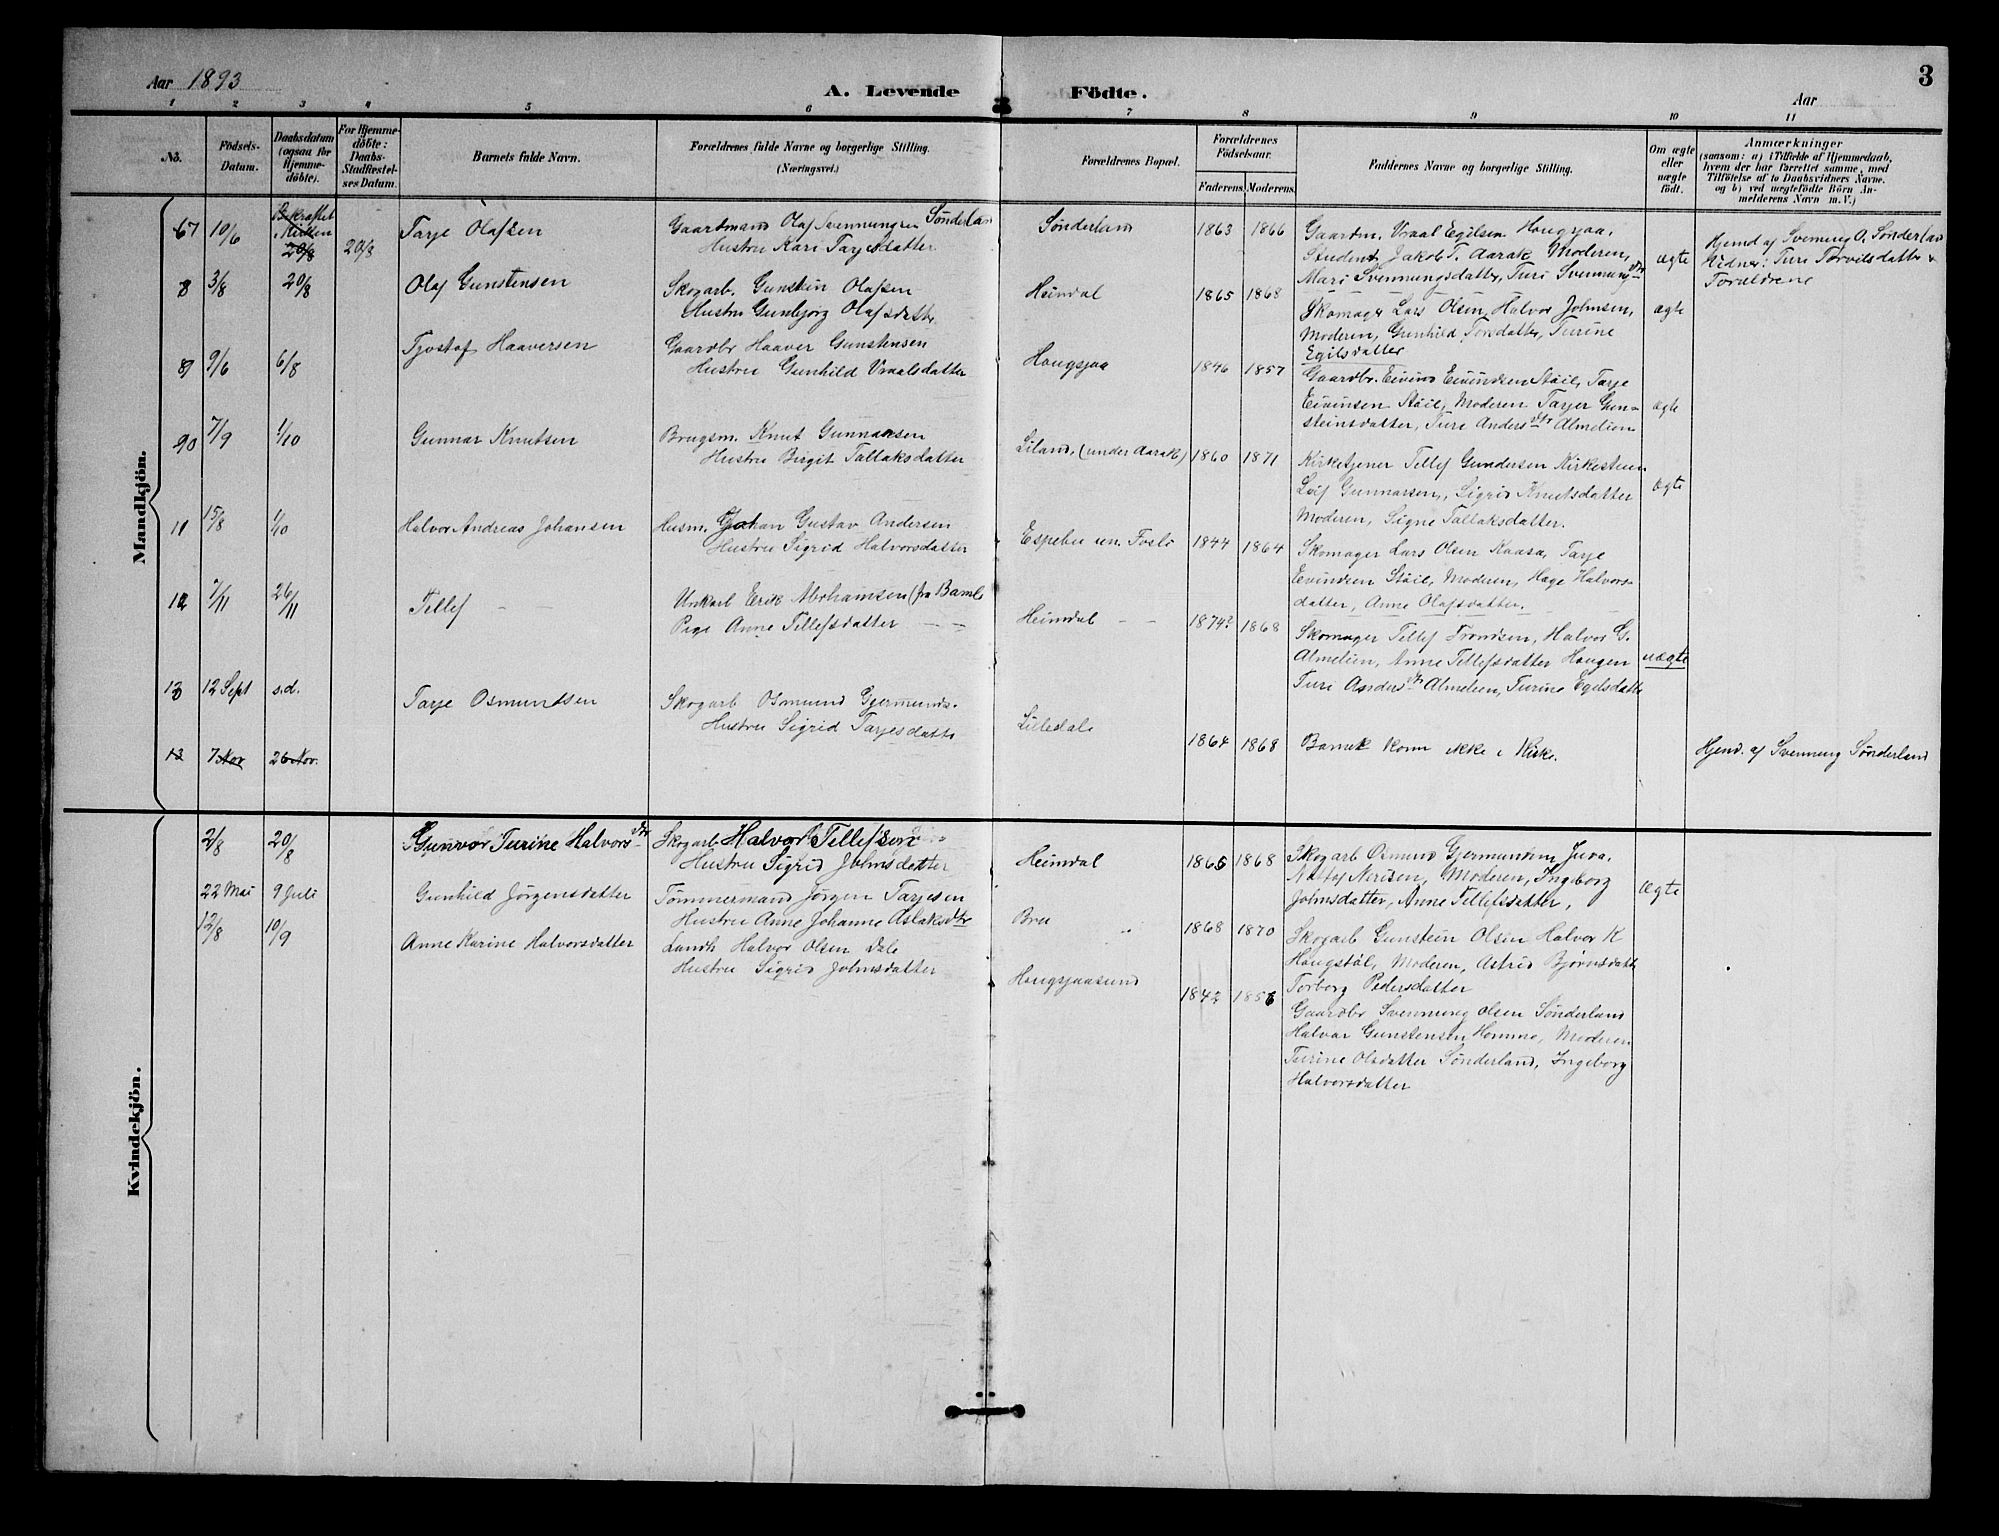 Aar 1893
A. Levende Födte.
Aar
3
1 2 3 4 5 6 7 8 9 10 11
No.
Födsels-Datum.
Daabsdatum (ogsaa for Hjemme-döbte).
For Hjemme-döbte: Daabs-Stadfæstel-ses Datum.
Barnets fulde Navn.
Forældrenes fulde Navne og borgerlige Stilling. (Næringsvei.)
Forældrenes Bopæl.
Forældrenes Födselsaar.
Faderens. Moderens.
Faddernes Navne og borgerlige Stilling.
Om ægte eller uægte födt.
Anmærkninger
(saasom: a) i Tilfælde af Hjemmedaab,
hvem der har forrettet samme, med
Tilföielse af to Daabsvidners Navne.
og b) ved uægtefödte Börn An-
melderens Navn m. V.)
Mandkjön.
7 10/6 20/8 20/8 Tarje Olafsen
Gaardmand Olaf Svennungsen Sönderland
Hustru Kari Tarjesdatter
Sönderland 1863 1866
Gaardm. Vraal Egilsen Haugsjaa,
Student Jakob T. Aarak, Moderen,
Mari Svennungsdatter, Turi Svennungsdtr
ægte
Hjemd af Svenning O. Sönderland
Vidner: Turi Torvilsdatter &
Forældrene
8 3/8 20/8 Olaf Gunstensen
Skogarb. Gunstein Olafsen
Hustru Gunbjorg Olafsdatter
Heimdal 1865 1868
Skomager Lars Olsen, Halvor Johnsen,
Moderen, Gunhild Torsdatter, Turine
Egilsdatter
ægte
9 9/6 6/8 Tjostof Haaversen
Gaardbr Haaver Gunstensen
Hustru Gunhild Vraalsdatter
Haugsjaa 1846 1857
Gaardbr. Eivind Eivindsen Stöil, Tarje
Eivinsen Stöil, Moderen Tarjer Gun-
steinsdatter, Turi Andersdtr Almelien
ægte
10 7/9 1/10 Gunnar Knutsen
Brugsm. Knut Gunnarsen
Hustru Birgit Tallaksdatter
Liland, (under Aarak) 1860 1871
Kirketjener Tellef Gundersen Kirkesteen
Leif Gunnarsen, Sigrid Knutsdatter
Moderen, Signe Tallaksdatter.
ægte
11 15/8 1/10 Halvor Andreas Johansen
Husm. Johan Gustav Andersen
Hustru Sigrid Halvorsdatter
Espelu un. Fosli 1844 1864
Skomager Lars Olsen Kaasa, Tarje
Eivindsen Stöil, Moderen, Hæge Halvors-
datter, Anne Olafsdatter.
12 7/11 26/11 Tellef
Unkarl Erik Abrahamsen (fra Bamle
Pige Anne Tellefsdatter
Heimdal 1874? 1868
Skomager Tellef Trondsen, Halvor G.
Almelien, Anne Tellefsdatter Haugen
Turi Andersdtr Almelien, Turine Egilsdatter
uægte
13 12 Sept s.d. Tarje Osmundsen
Skogarb Osmund Gjermunds.
Hustru Sigrid Tarjesdatter
Lilledale 1864 1868
Barnet kom ikke i Kirke.
Hjemd. af Svennung Sönderland
13 7 Nov 26 Nov.
Kvindekjön.
2/8 20/8 Gunvor Turine Halvorsdtr
Skogarb Halvor Tellefsen
Hustru Sigrid Johnsdatter
Heimdal 1865 1868
Skogarb Osmund Gjermundsen Juva,
Nærisen, Moderen, Ingeborg
Johnsdatter, Anne Tellefsdatter,
Ægte
22 Mai 9 Juli Gunhild Jörgensdatter
Tömmermand Jörgen Tarjesen
Hustru Anne Johanne Aslaksdtr
Bru 1868 1870
Skogarb Gunstein Olsen Halvor K
Haugstöl, Moderen, Astrid Björnsdatter
Torborg Pedersdatter
12/8 10/9 Anne Karine Halvorsdatter
Landh Halvor Olsen Dale
Hustru Sigrid Johnsdatter
Haugsjaasund 1842 1856
Gaardbr Svennung Olsen Sönderland
Halvar Gunstensen Homme, Moderen
Turine Olsdatter Sönderland, Ingeborg
Halvorsdatter